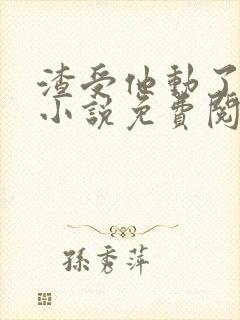 渣受他動了
小說免費閱
孫秀萍